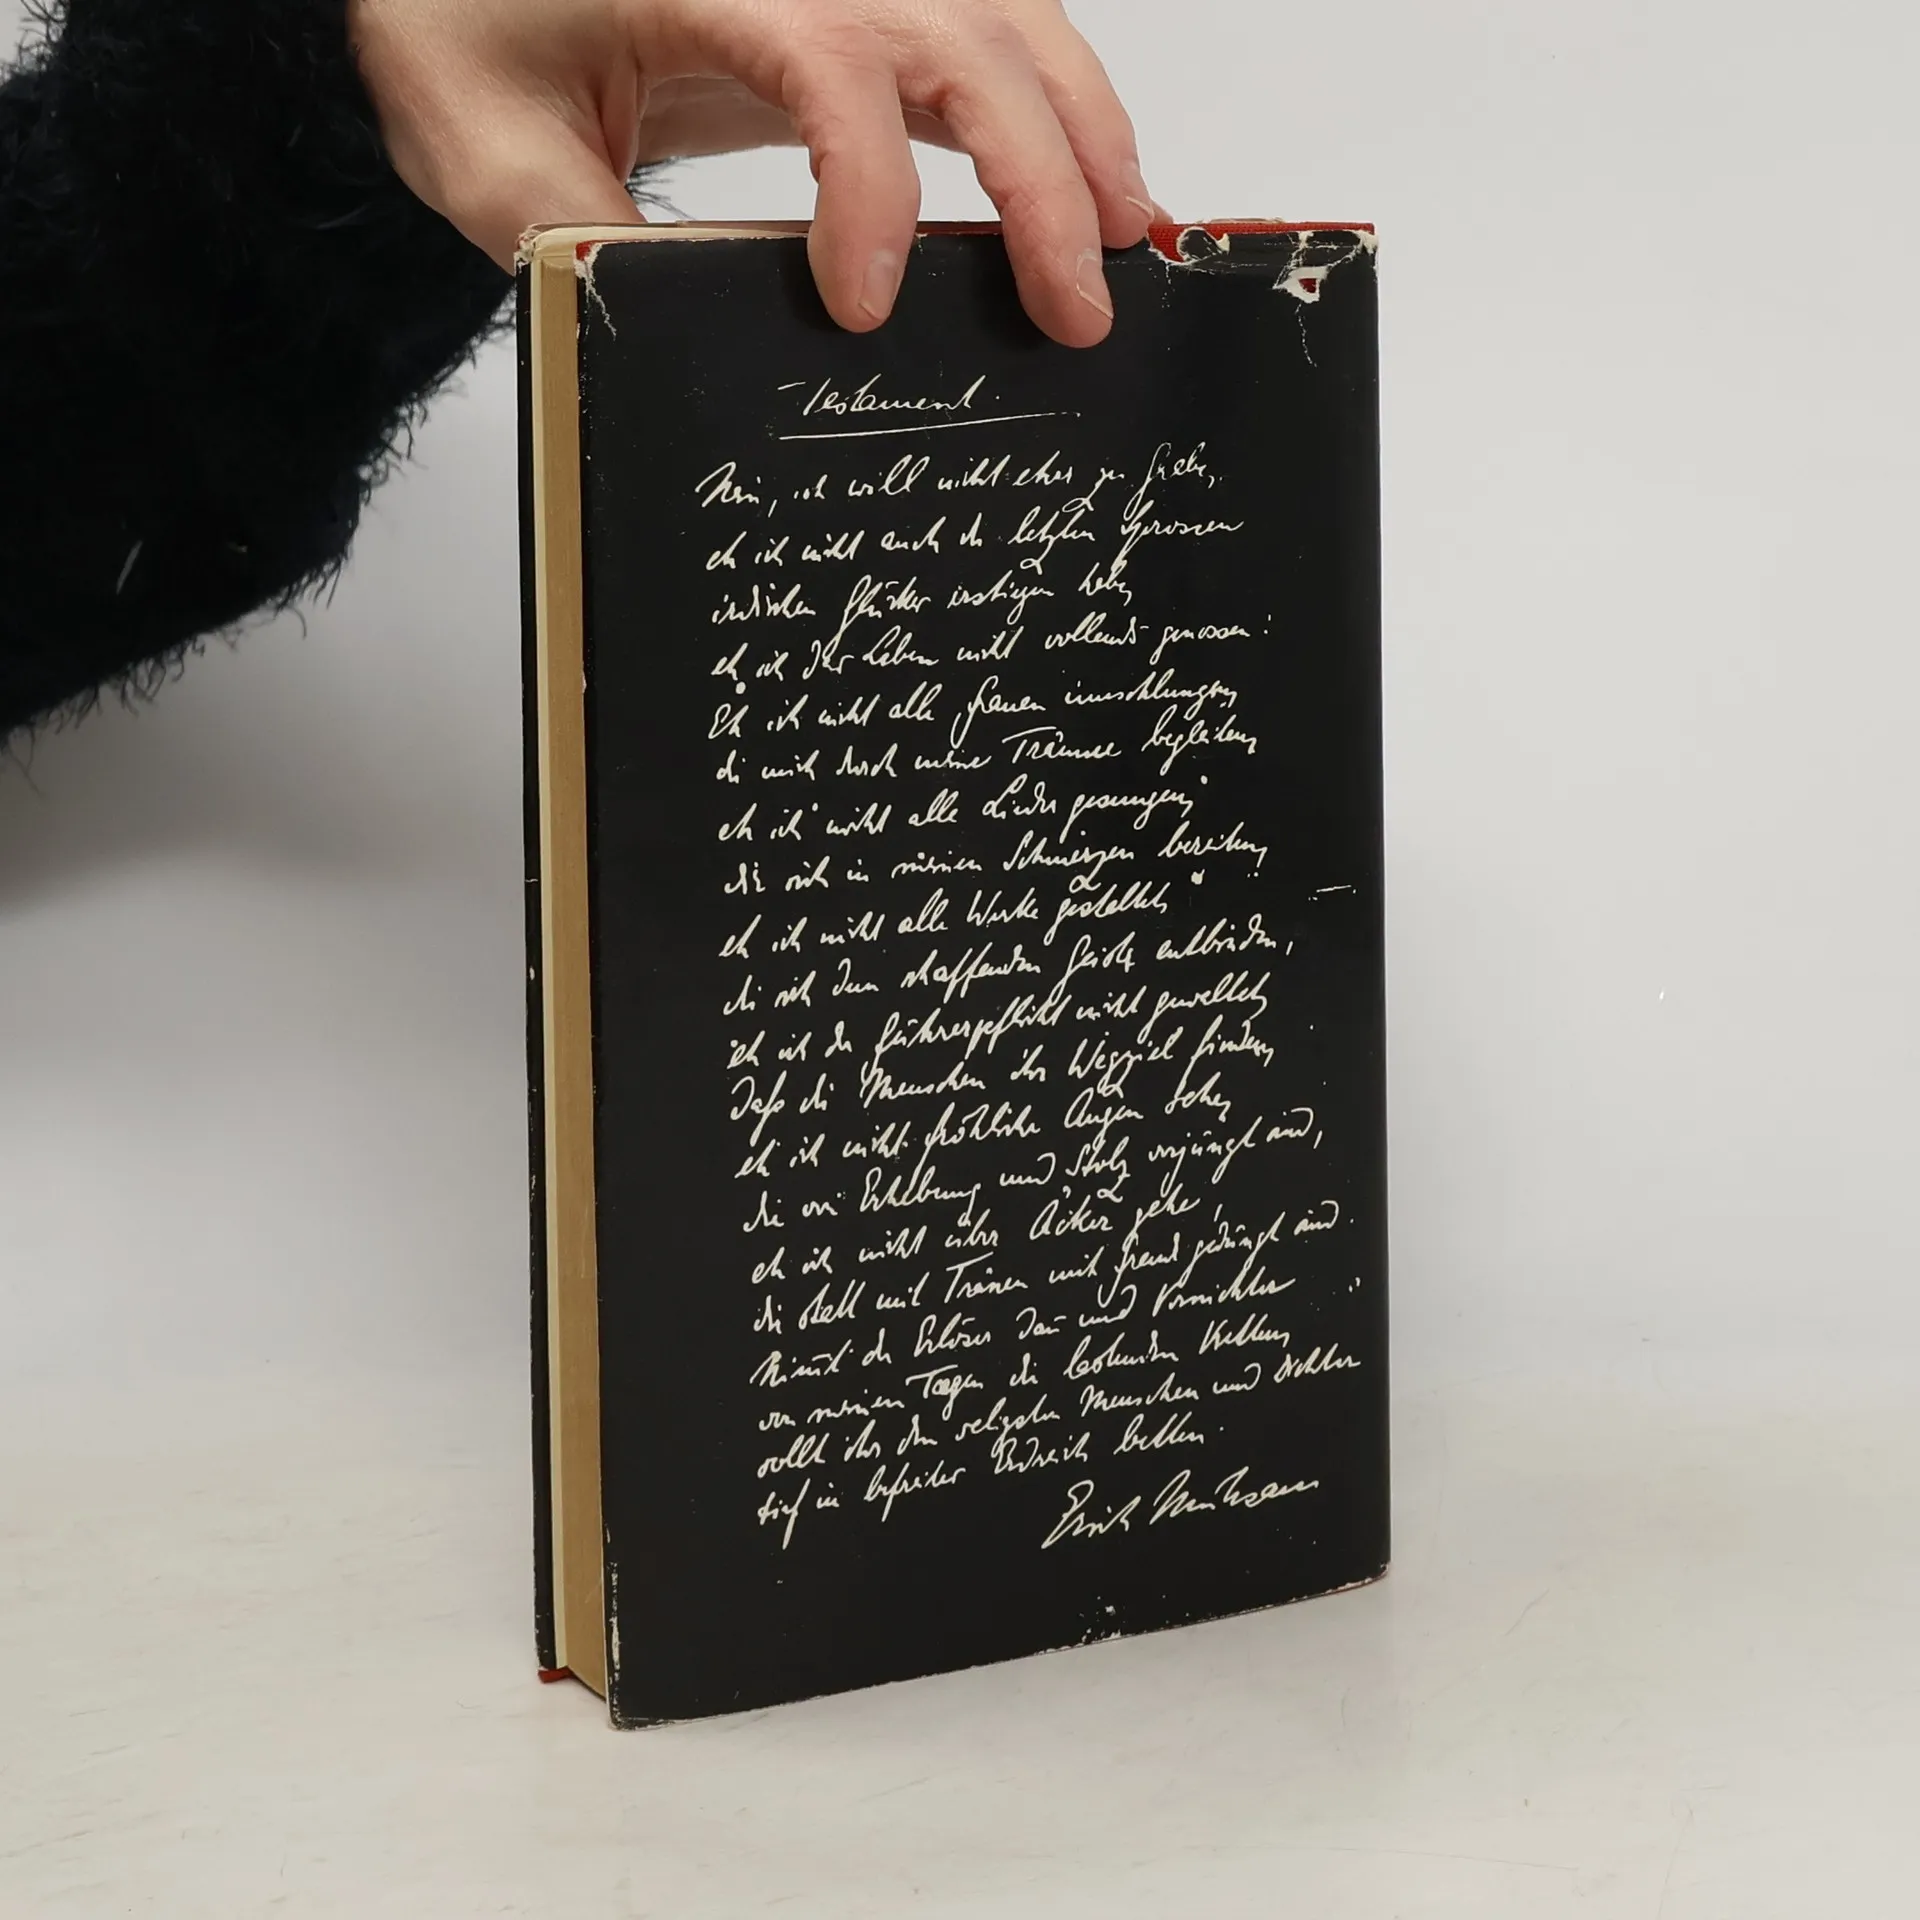 Testament.
Nein, ich will nicht eher zu Grabe,
eh ich nicht auch die letzten Sprossen
irdischen Glückes erstiegen habe,
eh ich das Leben nicht vollends genossen:
Eh ich nicht alle Frauen umschlungen,
die mich durch meine Träume begleiten,
eh ich nicht alle Lieder gesungen,
die sich in meinen Schmerzen bereiten,
eh ich nicht alle Werke gestaltet,
die sich dem schaffenden Geiste entbinden,
eh ich der Führerpflicht nicht gewaltet,
Daß die Menschen ihr Wegziel finden,
eh ich nicht fröhliche Augen sehe,
die von Erhebung und Stolz verjüngt sind,
eh ich nicht über Äcker gehe,
die statt mit Tränen mit Freude gedüngt sind.
Nimmt der Erlöser dann und Vernichter
von meinen Tagen die lastenden Ketten,
sollt ihr den seligsten Menschen und Dichter
tief in befreites Erdreich betten.
Erich Mühsam